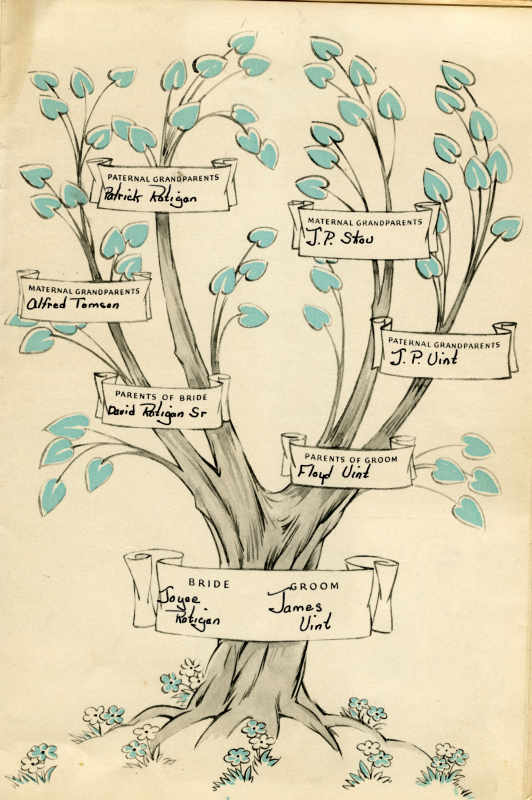 PATERNAL GRANDPARENTS
Patrick Ratigan
MATERNAL GRANDPARENTS
J.P. Stou
MATERNAL GRANDPARENTS
Alfred Tomson
PATERNAL GRANDPARENTS
J.P. Uint
PARENTS OF BRIDE
David Ratigan Sr
PARENTS OF GROOM
Floyd Uint
BRIDE GROOM
Joyce James
Ratigan Uint